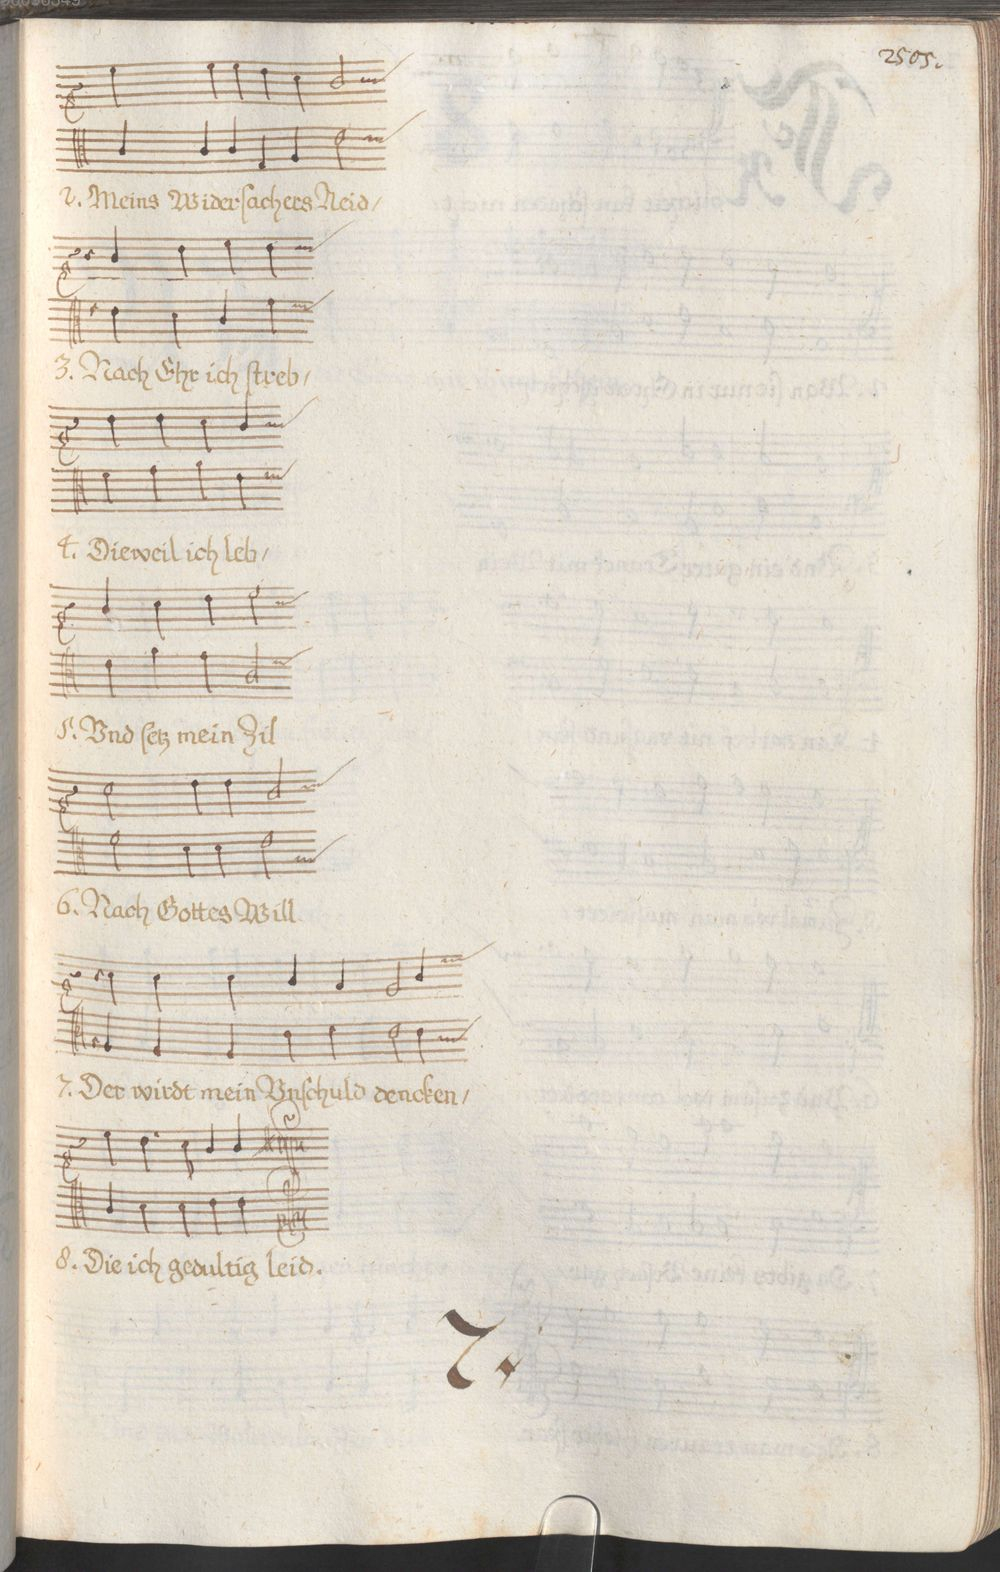 2505.
2. Meins Widersachers Neid/
3. Nach Ehr ich streb/
4. Dieweil ich leb/
5. Vnd setz mein Zil
6. Nach Gottes Will
7. Der wirdt mein Vnschuld dencken/
8. Die ich gedultig leid.
7.